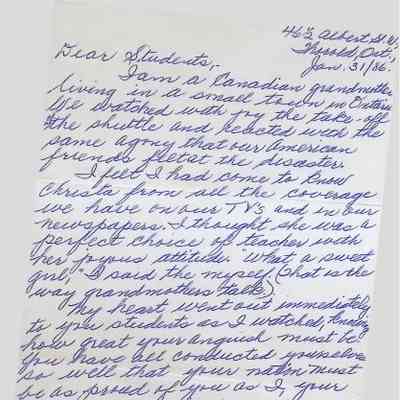 46½ Albert St. W.
Thorold, Ont.,
Jan. 31/86.
Dear Students,-
I am a Canadian grandmother
living in a small town in Ontario
We watched with joy the take-off
of the shuttle and reacted with the
same agony that our American
friends felt at the disaster.
I felt I had come to know
Christa from all the coverage
we have on our TV's and in our
newspapers. I thought she was a
perfect choice of teacher with
her joyous attitude. "What a sweet
girl," I said the myself. (That is the
way grandmothers talk)
My heart went out immediately
to you students as I watched, knowing
how great your anguish must be.
You have all conducted yourselves
so well that your nation must
be as proud of you as I, your